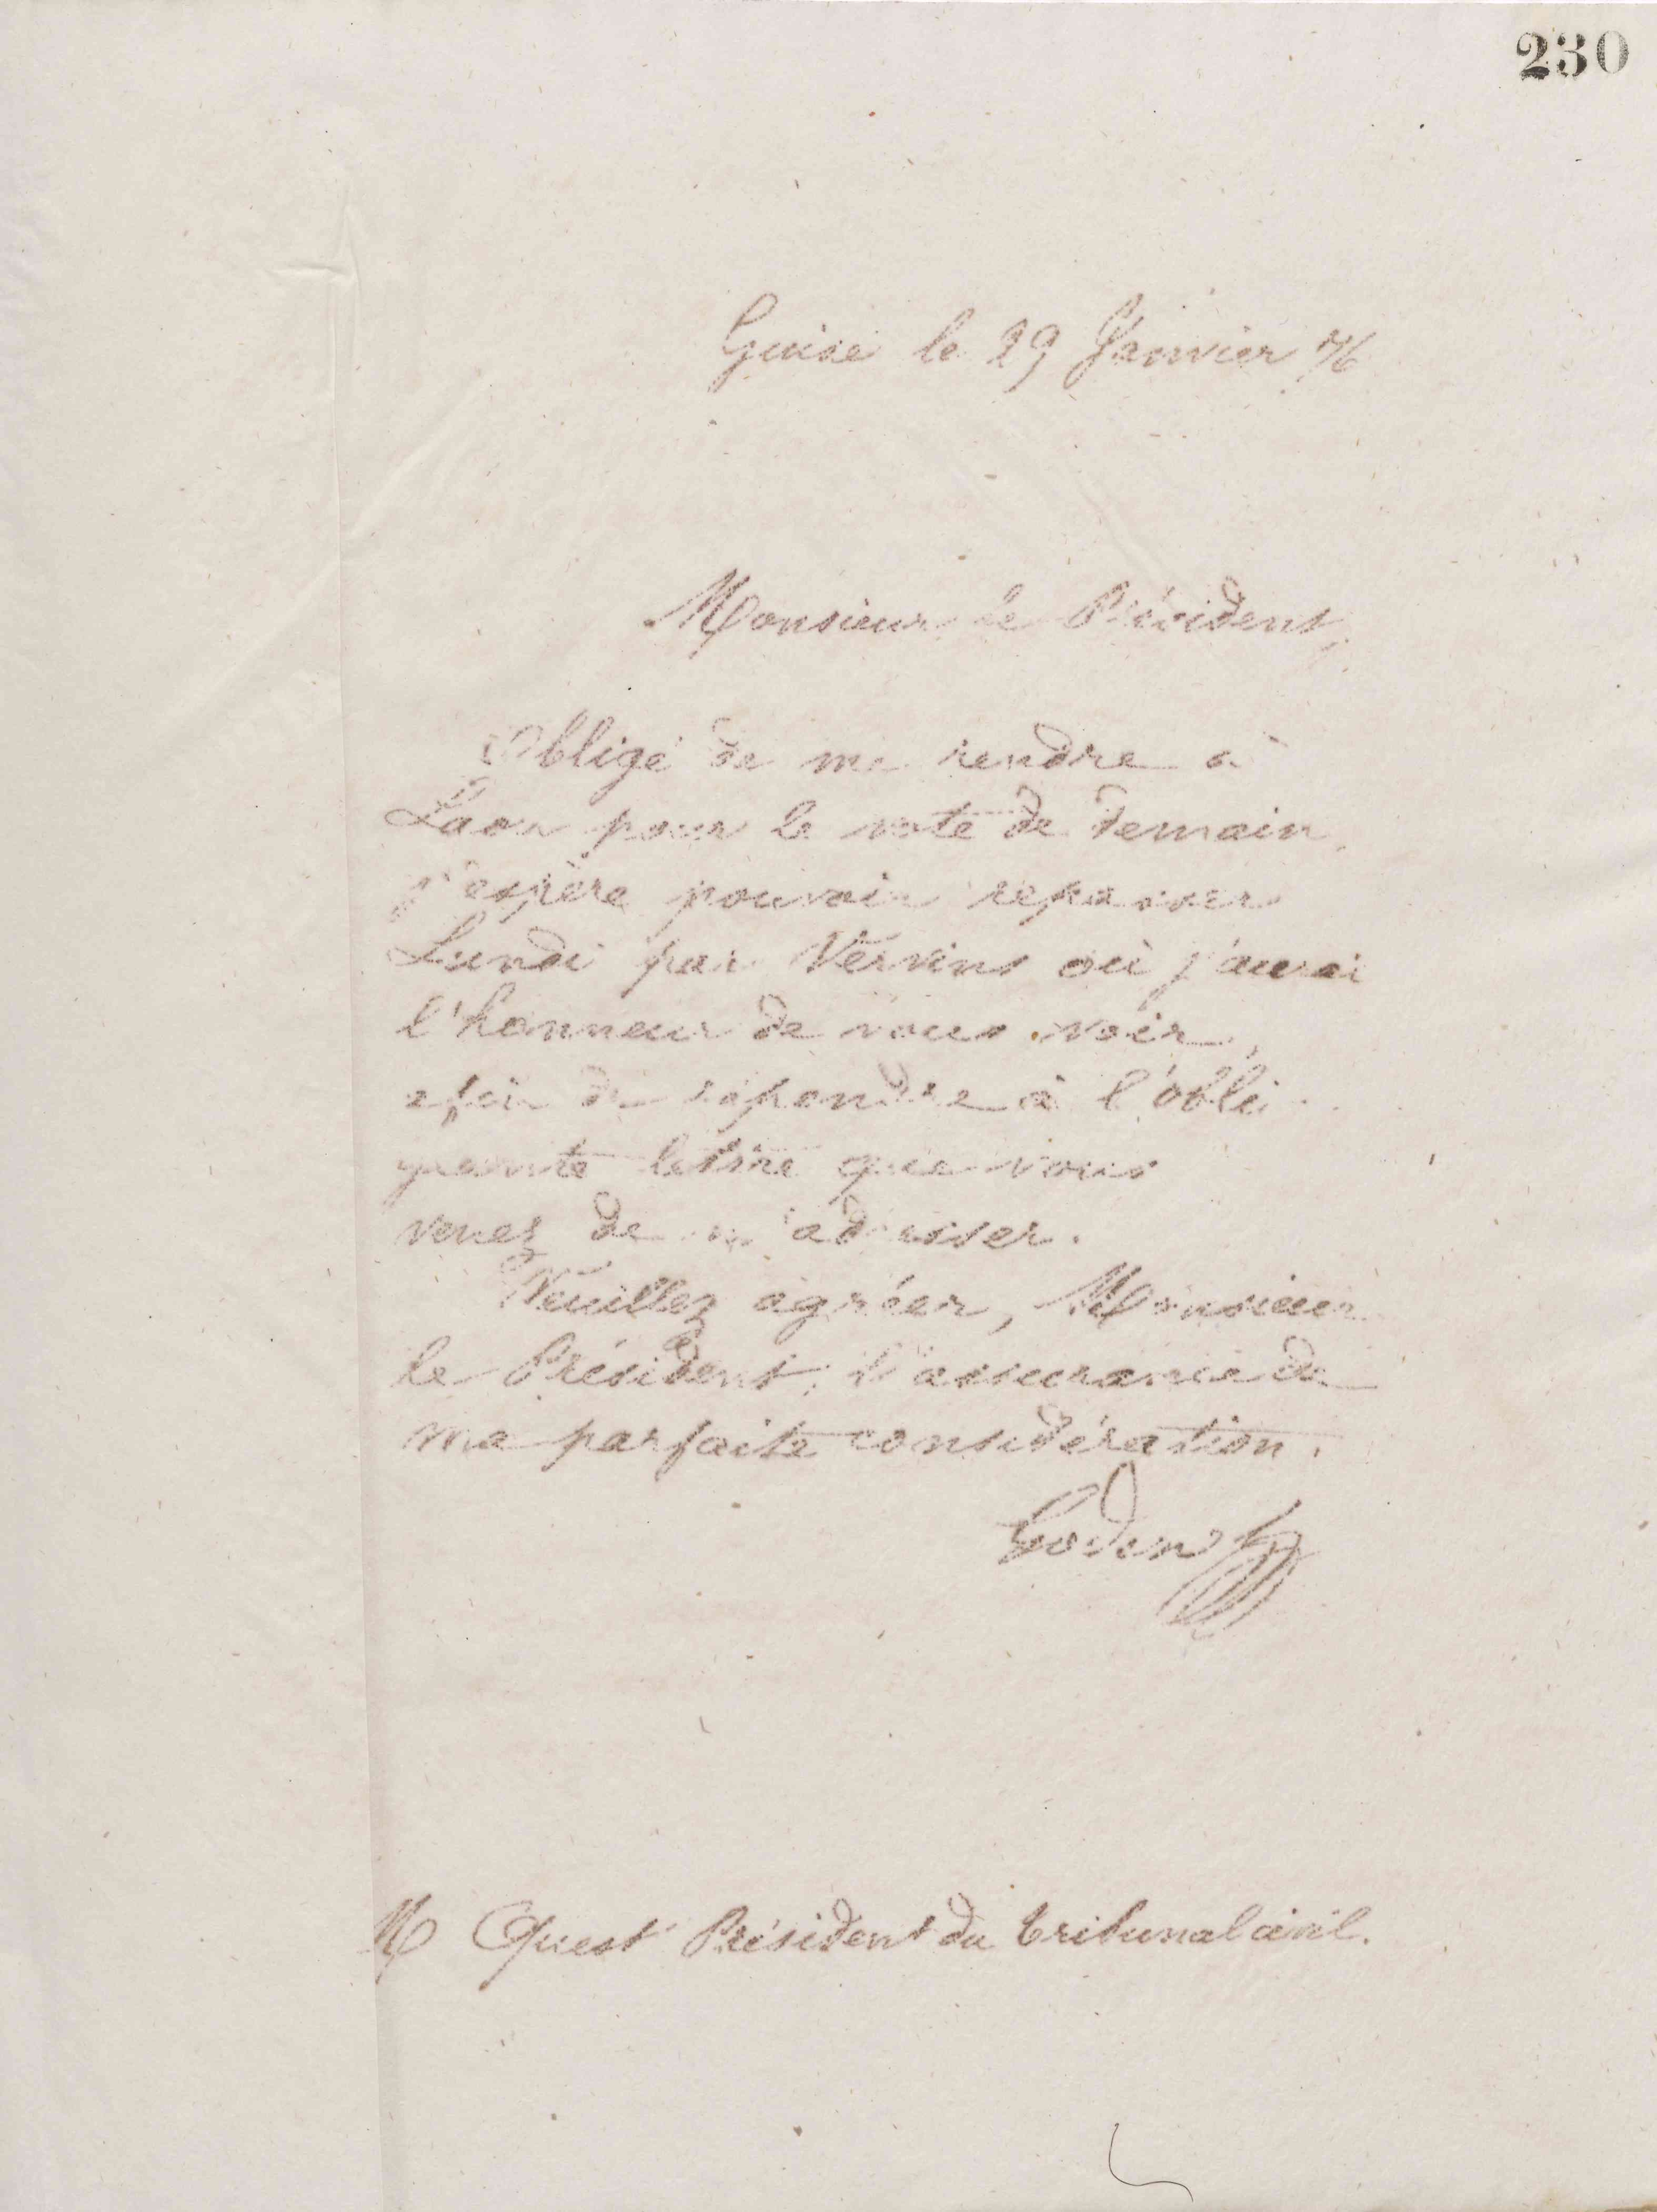 230
Guise le 29 Janvier 76
Monsieur le Président,
Obligé de me rendre à
Laon pour le vote de demain,
j'espère pouvoir repasser
Lundi par Vervins où j'aurai
l'honneur de vous voir,
afin de répondre à l'obli-
geante lettre que vous
venez de m'adresser.
Veuillez agréer, Monsieur
le Président, l'assurance de
ma parfaite considération.
Godin
M Quest Président du tribunal civil.